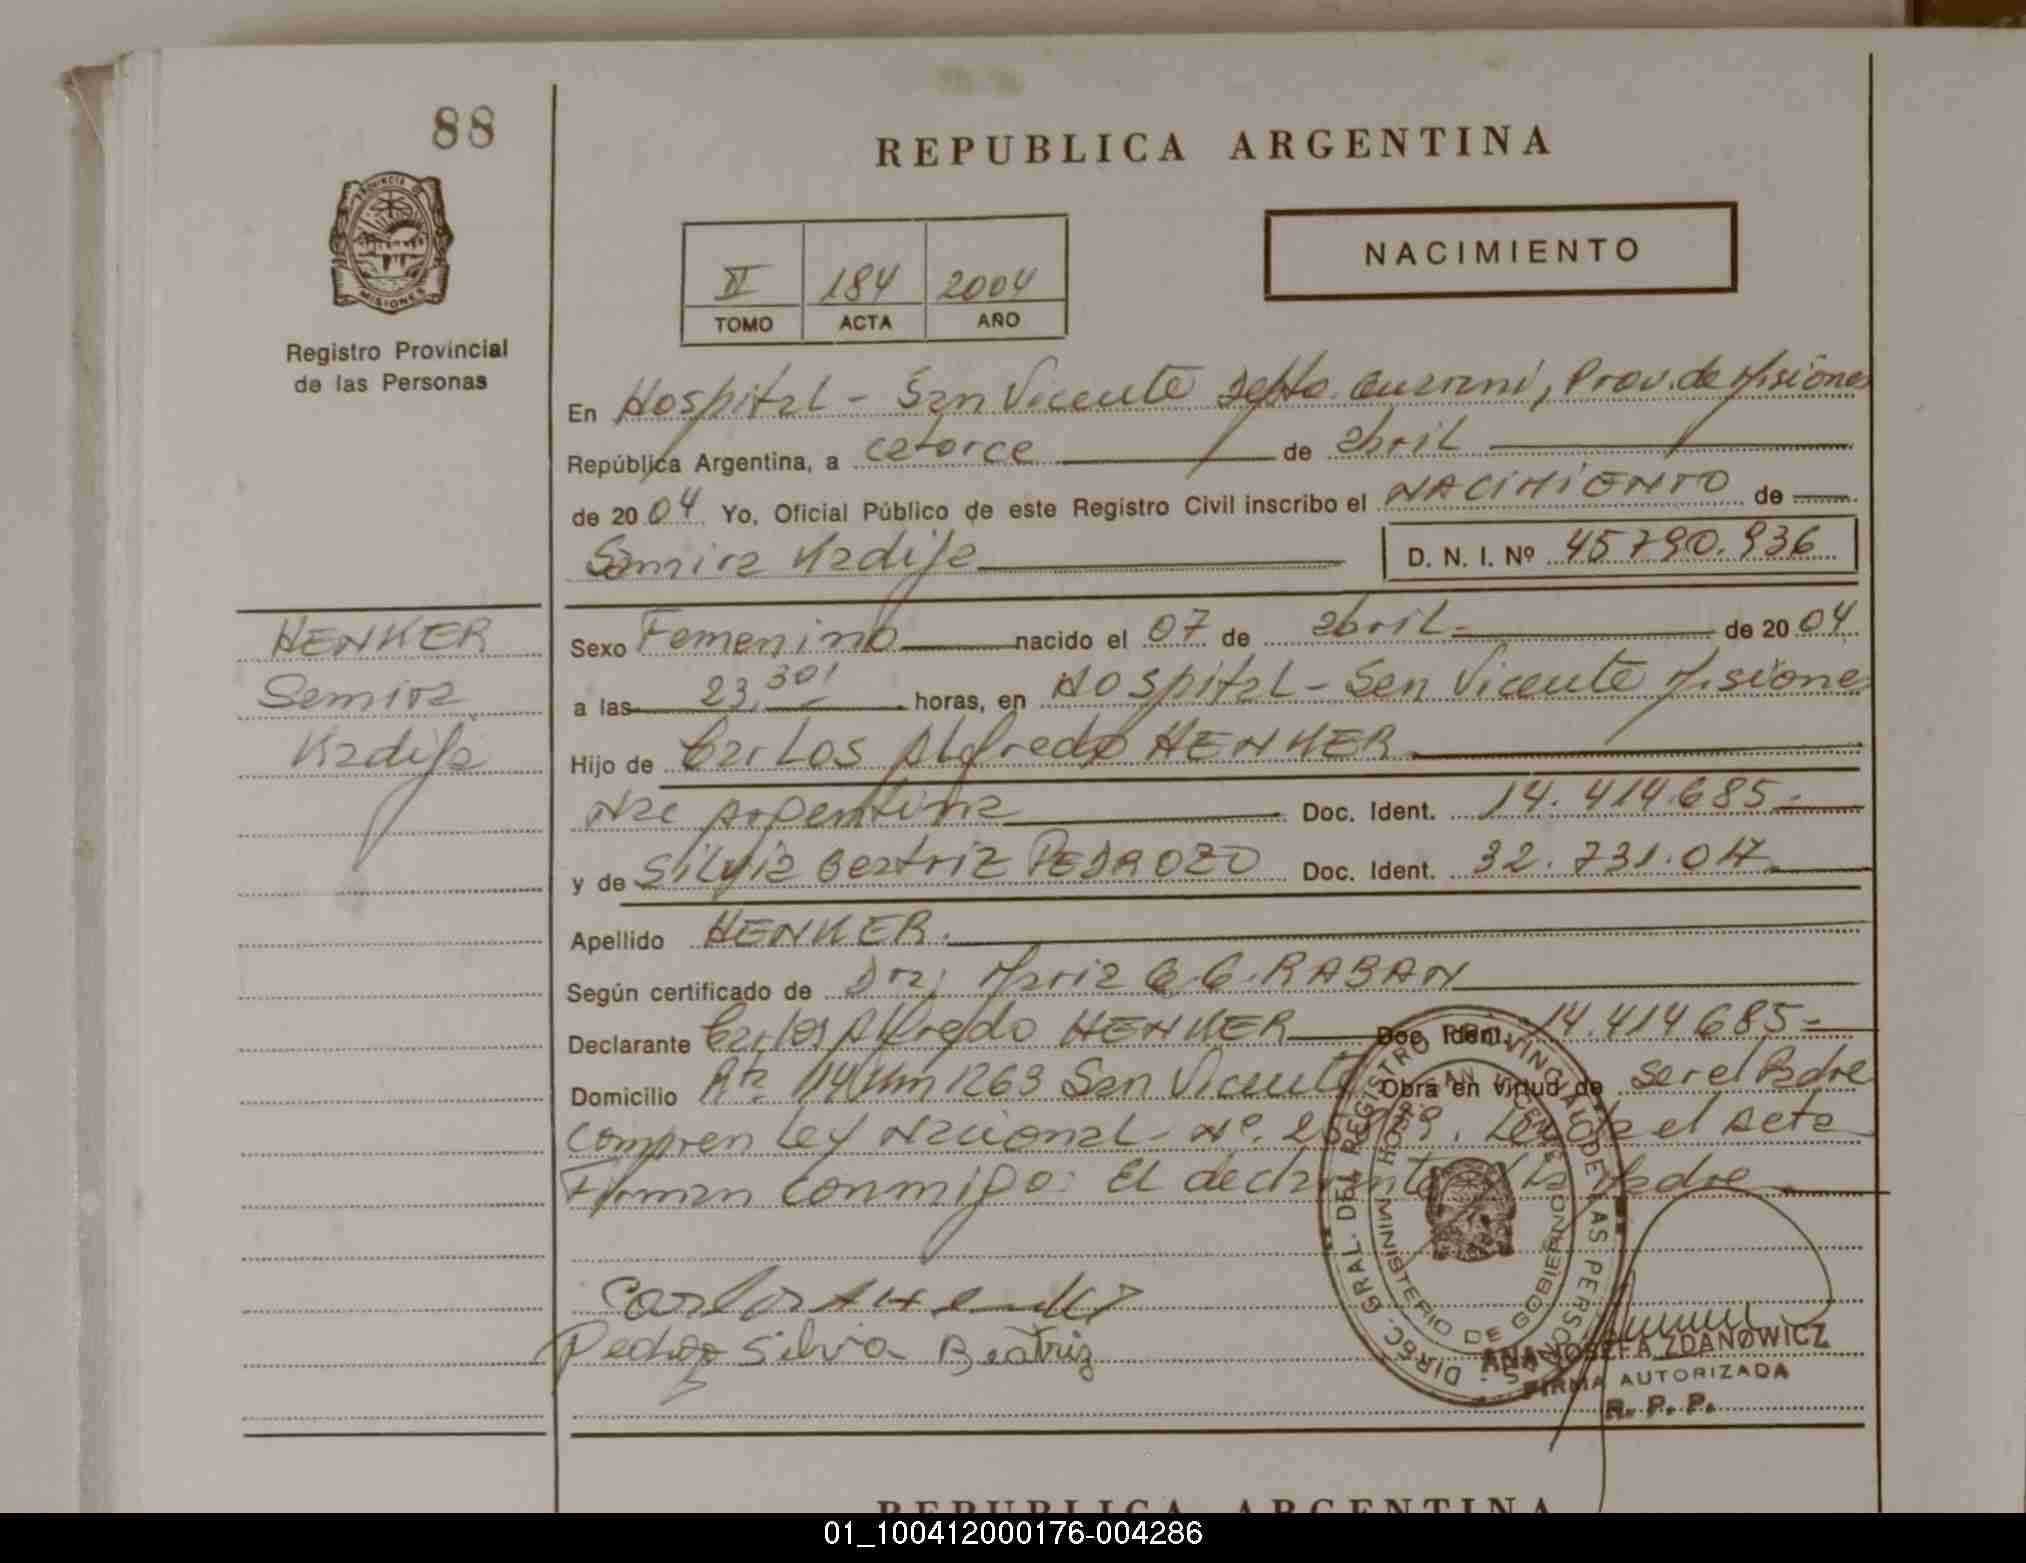 88
REPUBLICA ARGENTINA
PROVINCIA DE MISIONES
Registro Provincial
de las Personas
II 184 2004
TOMO ACTA AÑO
NACIMIENTO
En Hospital - San Vicente Depto. Guarani, Prov. de Misiones
República Argentina, a catorce de abril
de 2004 Yo, Oficial Público de este Registro Civil inscribo el NACIMIENTO de
Samira Kadija D. N. I. Nº 45790.936
HENKER
Samira
Kadija
Sexo Femenino nacido el 07 de abril de 2004
a las 23,30 horas, en Hospital - San Vicente Misiones
Hijo de Carlos Alfredo HENKER
Nac Argentina Doc. Ident. 14.414.685
y de Silvia Beatriz PEDROZO Doc. Ident. 32.731.017
Apellido HENKER
Según certificado de Dra; Maria G. RABAN
Declarante Carlos Alfredo HENKER Doc. Ident. 14.414685
Domicilio Rta 14 Km 1263 San Vicente Obra en virtud de ser el Padre
Ley Nacional Nº. el Acta
Firman conmigo: El declarante y la Madre
Pedrozo Silvia Beatriz
DIREC. GRAL. DEL REGISTRO PROVINCIAL DE LAS PERSONAS
MINISTERIO DE GOBIERNO
SAN VICENTE
ANA JOSEFA ZDANOWICZ
FIRMA AUTORIZADA
R. P. P.
REPUBLICA ARGENTINA
01_100412000176-004286